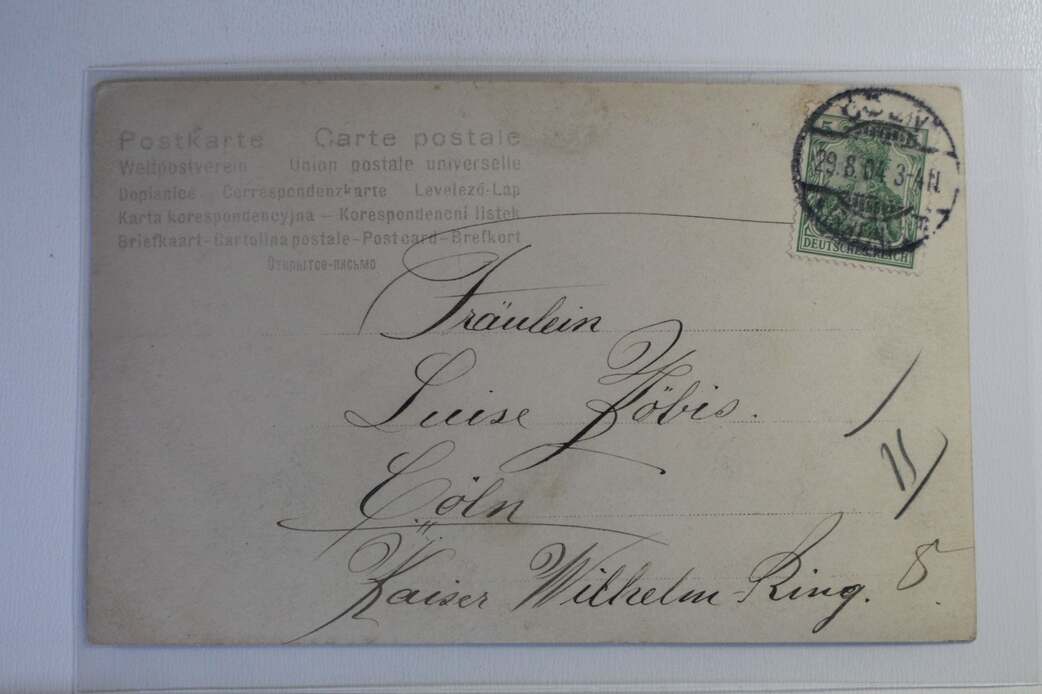 Postkarte Carte postale
Weltpostverein - Union postale universelle
Dopisnice - Correspondenzkarte Levelező-Lap
Karta korespondencyjna - Korespondenční lístek
Briefkaart - Cartolina postale - Postcard - Brefkort
Открытое-письмо
29.8.04 3-4N
DEUTSCHES REICH
Fräulein
Luise
Cöln
Kaiser Wilhelm-Ring. 8.